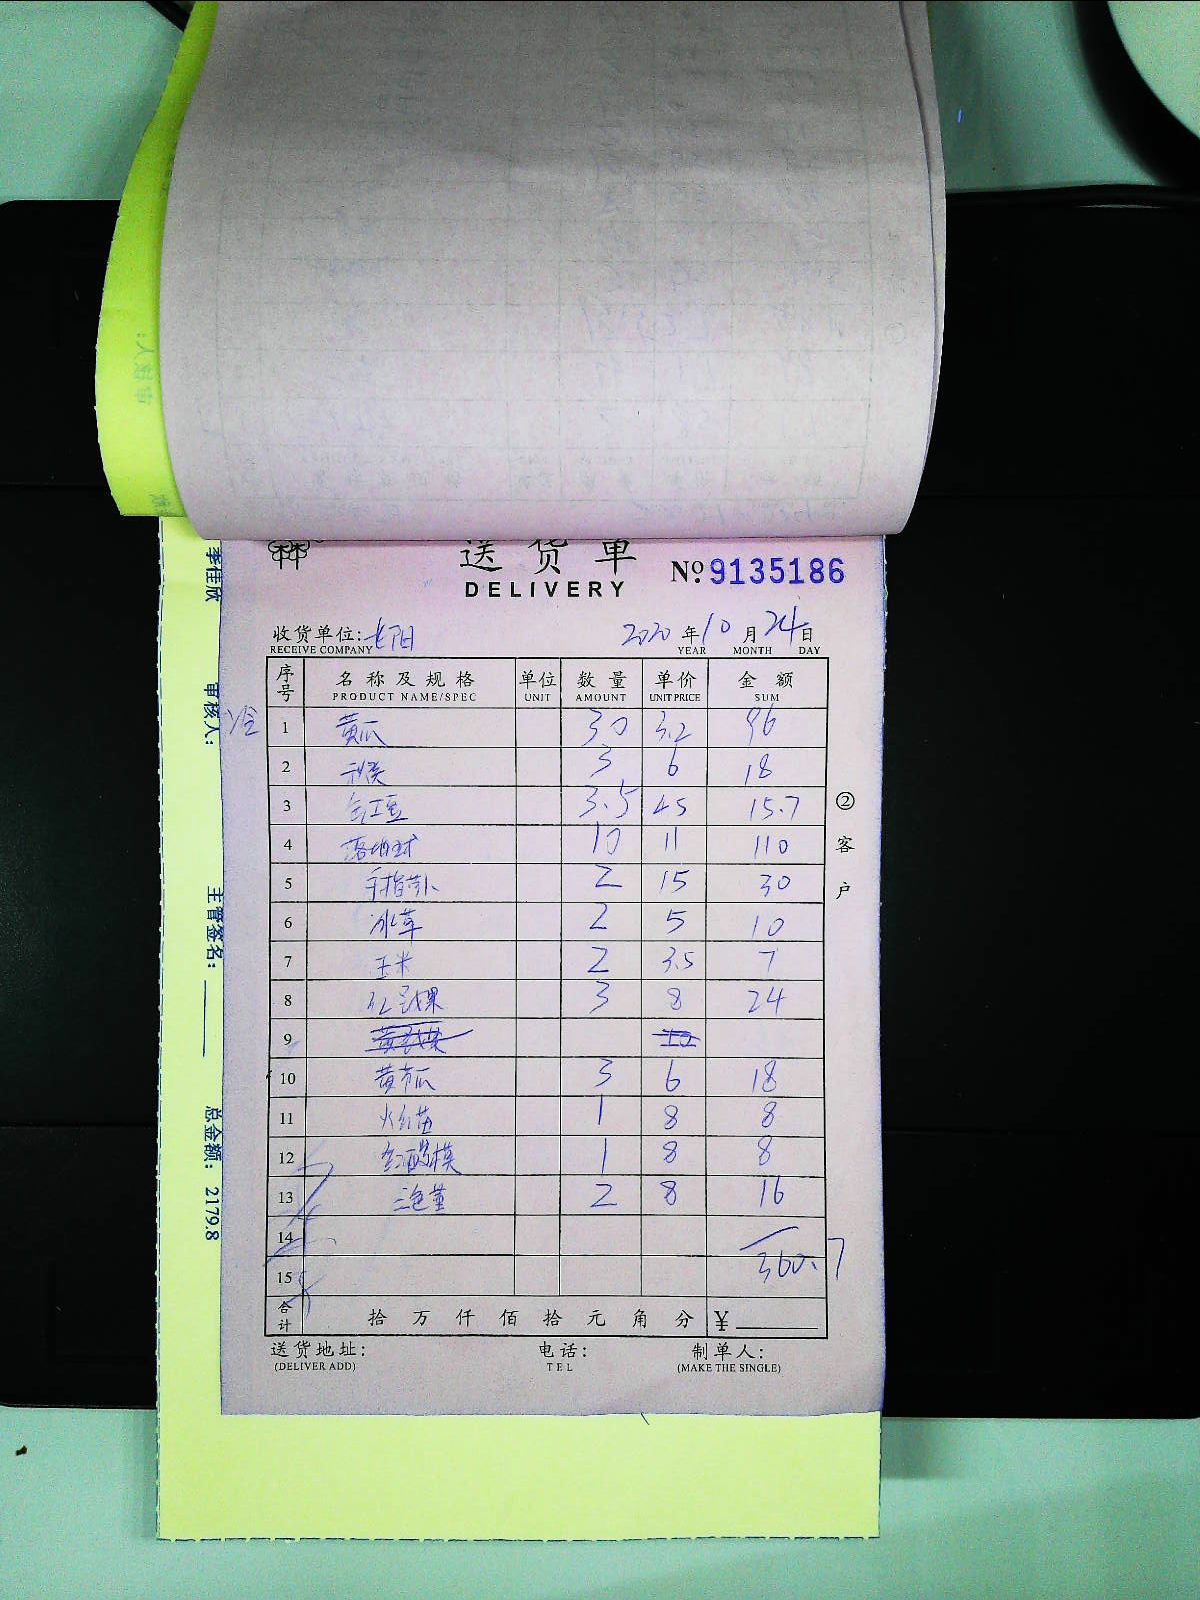 送货单
DELIVERY
No 9135186
收货单位: RECEIVE COMPANY 2020 年 YEAR 10 月 MONTH 24 日 DAY
序号 名称及规格 PRODUCT NAME/SPEC 单位 UNIT 数量 AMOUNT 单价 UNIT PRICE 金额 SUM
1 黄瓜 30 3.2 96
2 3 6 18
3 3.5 45 15.7
4 10 11 110
5 手指 2 15 30
6 冰草 2 5 10
7 玉米 2 3.5 7
8 3 8 24
9
10 3 6 18
11 1 8 8
12 1 8 8
13 三色堇 2 8 16
14
15 360.7
合计 拾 万 仟 佰 拾 元 角 分 ¥
送货地址: (DELIVER ADD) 电话: TEL 制单人: (MAKE THE SINGLE)
②客户
李佳欣
审核人:
主管签名:
总金额: 2179.8